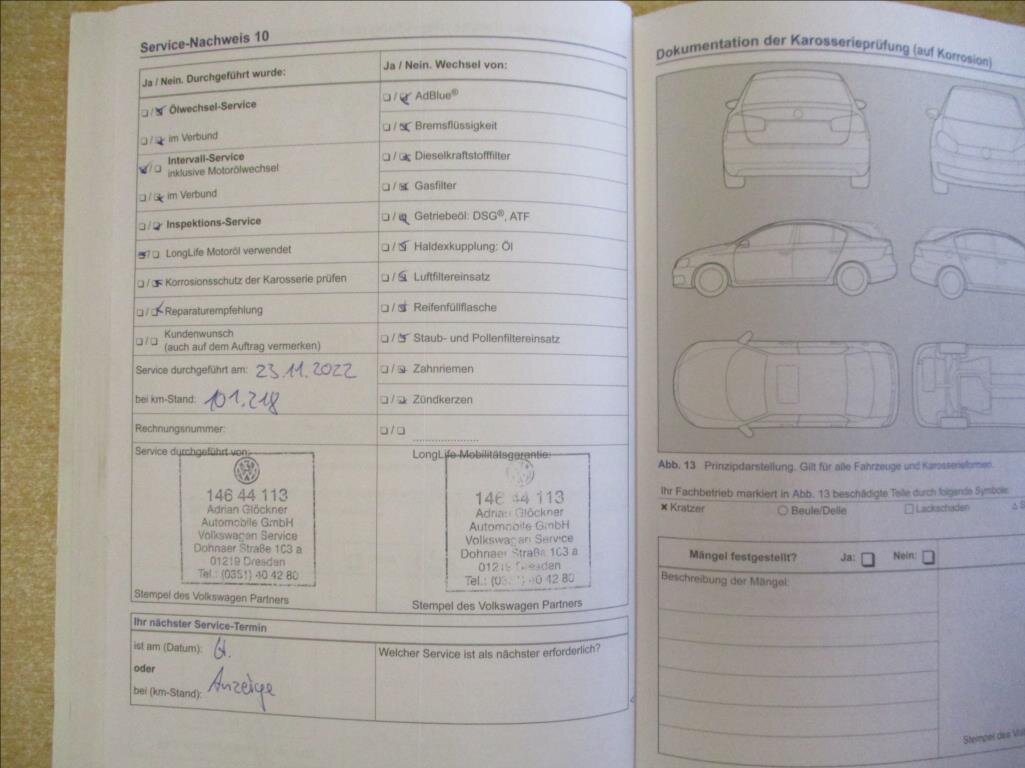 Service-Nachweis 10
Ja / Nein. Durchgeführt wurde:
❏ / ❏ Ölwechsel-Service
❏ / ❏ im Verbund
❏ / ❏ Intervall-Service
inklusive Motorölwechsel
❏ / ❏ im Verbund
❏ / ❏ Inspektions-Service
❏ / ❏ LongLife Motoröl verwendet
❏ / ❏ Korrosionsschutz der Karosserie prüfen
❏ / ❏ Reparaturempfehlung
❏ / ❏ Kundenwunsch
(auch auf dem Auftrag vermerken)
Service durchgeführt am: 23.11.2022
bei km-Stand: 101.218
Rechnungsnummer:
Service durchgeführt von:
146 44 113
Adrian Glöckner
Automobile GmbH
Volkswagen Service
Dohnaer Straße 103 a
01219 Dresden
Tel.: (0351) 40 42 80
Stempel des Volkswagen Partners
Ja / Nein. Wechsel von:
❏ / ❏ AdBlue®
❏ / ❏ Bremsflüssigkeit
❏ / ❏ Dieselkraftstofffilter
❏ / ❏ Gasfilter
❏ / ❏ Getriebeöl: DSG®, ATF
❏ / ❏ Haldexkupplung: Öl
❏ / ❏ Luftfiltereinsatz
❏ / ❏ Reifenfüllflasche
❏ / ❏ Staub- und Pollenfiltereinsatz
❏ / ❏ Zahnriemen
❏ / ❏ Zündkerzen
❏ / ❏ ....................
LongLife-Mobilitätsgarantie:
146 44 113
Adrian Glöckner
Automobile GmbH
Volkswagen Service
Dohnaer Straße 103 a
01219 Dresden
Tel.: (0351) 40 42 80
Stempel des Volkswagen Partners
Ihr nächster Service-Termin
ist am (Datum): lt.
oder
bei (km-Stand): Anzeige
Welcher Service ist als nächster erforderlich?
Dokumentation der Karosserieprüfung (auf Korrosion)
Abb. 13 Prinzipdarstellung. Gilt für alle Fahrzeuge und Karosserieformen.
Ihr Fachbetrieb markiert in Abb. 13 beschädigte Teile durch folgende Symbole:
✖ Kratzer ○ Beule/Delle □ Lackschaden △
Mängel festgestellt? Ja: ❏ Nein: ❏
Beschreibung der Mängel:
Stempel des